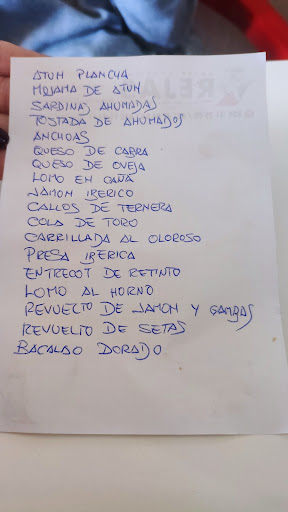 ATUN PLANCHA
MOJAMA DE ATUN
SARDINAS AHUMADAS
TOSTADA DE AHUMADOS
ANCHOAS
QUESO DE CABRA
QUESO DE OVEJA
LOMO EN CAÑA
JAMON IBERICO
CALLOS DE TERNERA
COLA DE TORO
CARRILLADA AL OLOROSO
PRESA IBERICA
ENTRECOT DE RETINTO
LOMO AL HORNO
REVUELTO DE JAMON Y GAMBAS
REVUELTO DE SETAS
BACALAO DORADO